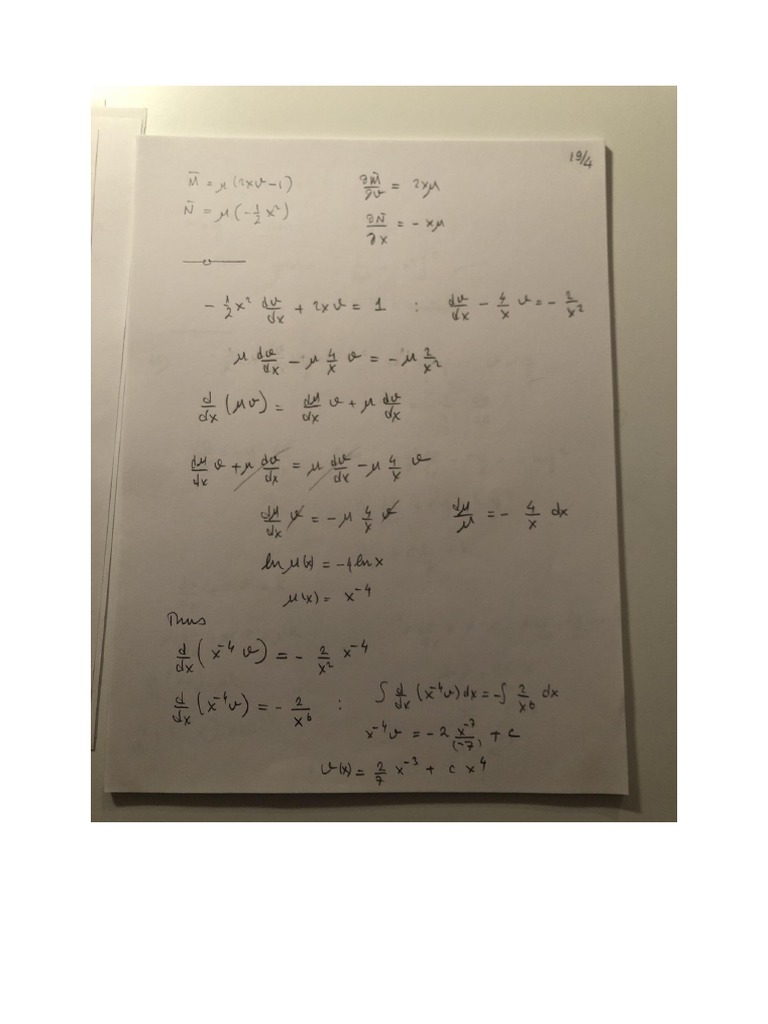 19/4
M̄ = μ(2xv-1)    ∂M̄/∂v = 2xμ
N̄ = μ(-1/2 x²)    ∂N̄/∂x = -xμ
-1/2 x² dv/dx + 2xv = 1 : dv/dx - 4/x v = -2/x²
μ dv/dx - μ 4/x v = -μ 2/x²
d/dx (μv) = dμ/dx v + μ dv/dx
dμ/dx v + μ dv/dx = μ dv/dx - μ 4/x v
dμ/dx v = -μ 4/x v    dμ/μ = - 4/x dx
ln μ(x) = -4 ln x
μ(x) = x⁻⁴
Thus
d/dx (x⁻⁴ v) = - 2/x² x⁻⁴
d/dx (x⁻⁴v) = - 2/x⁶ : ∫ d/dx (x⁻⁴v) dx = -∫ 2/x⁶ dx
x⁻⁴v = -2 x⁻⁷/(-7) + c
v(x) = 2/7 x⁻³ + c x⁴